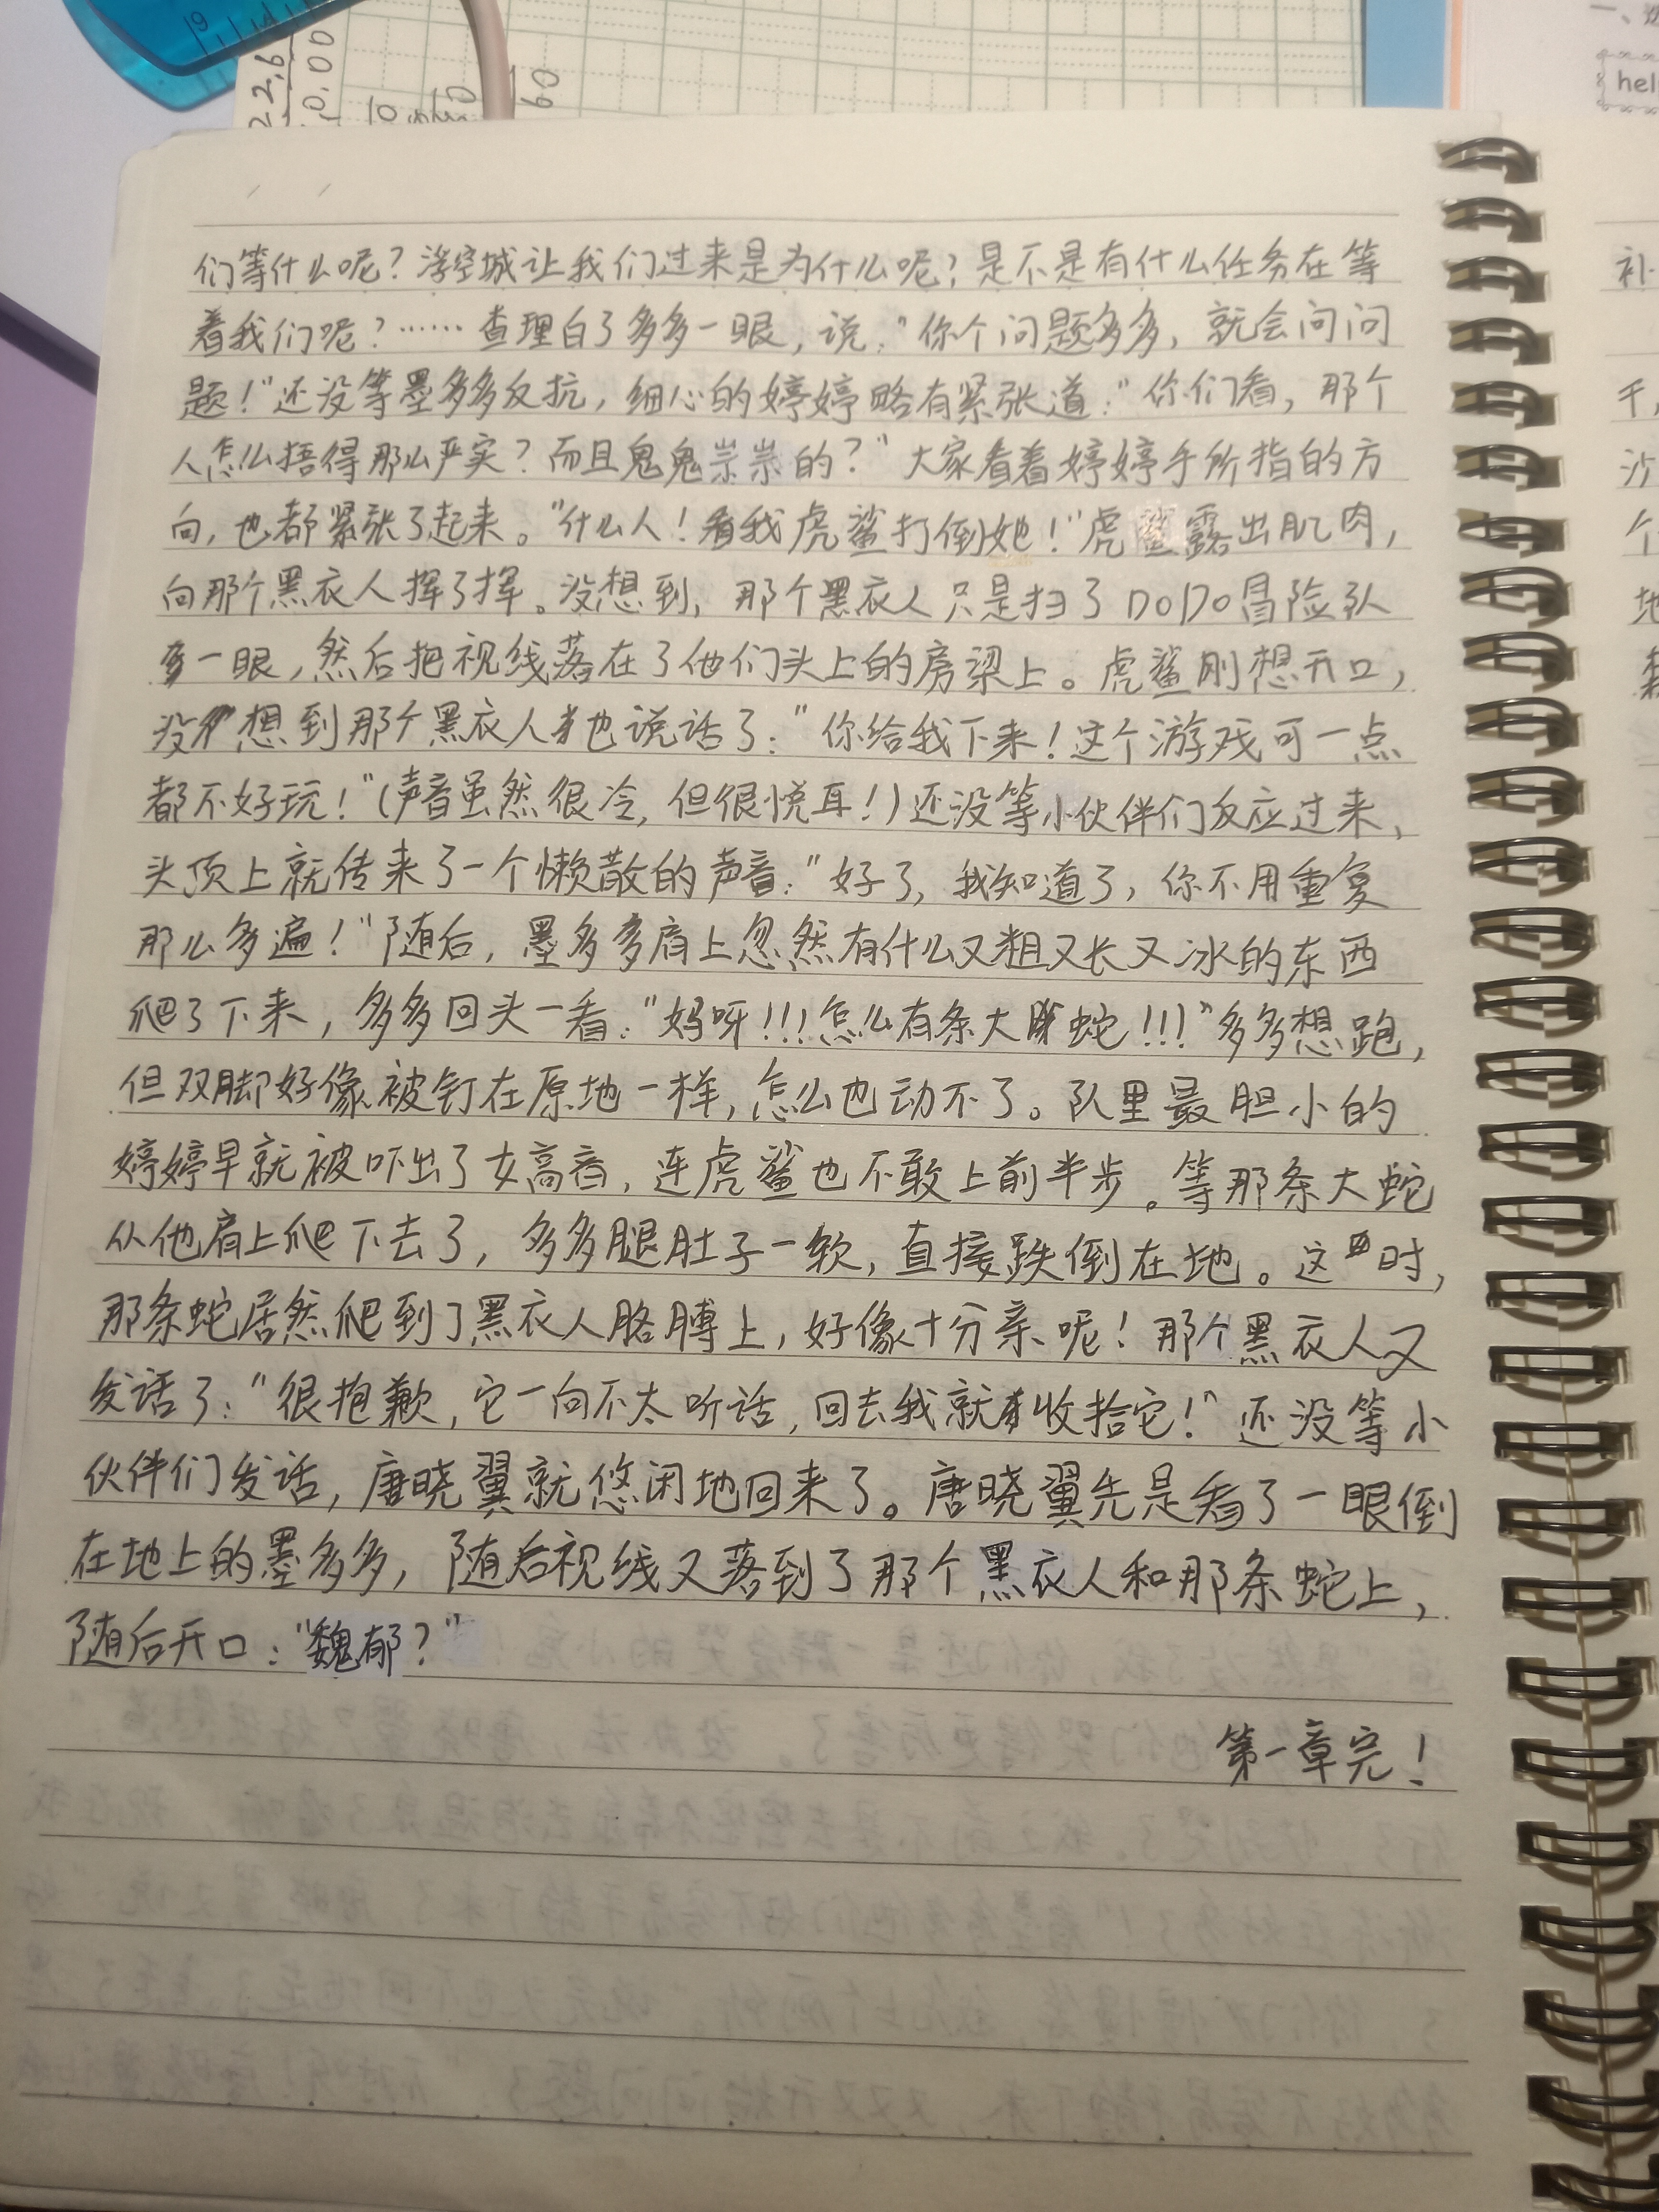 22.6
10.00
60
hel
们等什么呢？浮空城让我们过来是为什么呢？是不是有什么任务在等
着我们呢？……查理白了多多一眼，说：“你个问题多多，就会问问
题！”还没等墨多多反抗，细心的婷婷略有紧张道：“你们看，那个
人怎么捂得那么严实？而且鬼鬼祟祟的？”大家看着婷婷手所指的方
向，也都紧张了起来。“什么人！看我虎鲨打倒她！”虎鲨露出肌肉，
向那个黑衣人挥了挥。没想到，那个黑衣人只是扫了DODO冒险队
一眼，然后把视线落在了他们头上的房梁上。虎鲨刚想开口，
没想到那个黑衣人也说话了：“你给我下来！这个游戏可一点
都不好玩！”（声音虽然很冷，但很悦耳！）还没等小伙伴们反应过来，
头顶上就传来了一个懒散的声音：“好了，我知道了，你不用重复
那么多遍！”随后，墨多多肩上忽然有什么又粗又长又冰的东西
爬了下来，多多回头一看：“妈呀！！！怎么有条大蛇！！！”多多想跑，
但双脚好像被钉在原地一样，怎么也动不了。队里最胆小的
婷婷早就被吓出了女高音，连虎鲨也不敢上前半步。等那条大蛇
从他肩上爬下去了，多多腿肚子一软，直接跌倒在地。这时，
那条蛇居然爬到了黑衣人胳膊上，好像十分亲呢！那个黑衣人又
发话了：“很抱歉，它一向不太听话，回去我就收拾它！”还没等小
伙伴们发话，唐晓翼就悠闲地回来了。唐晓翼先是看了一眼倒
在地上的墨多多，随后视线又落到了那个黑衣人和那条蛇上，
随后开口：“魏郁？”
第一章完！
补
千，
沙
个
地